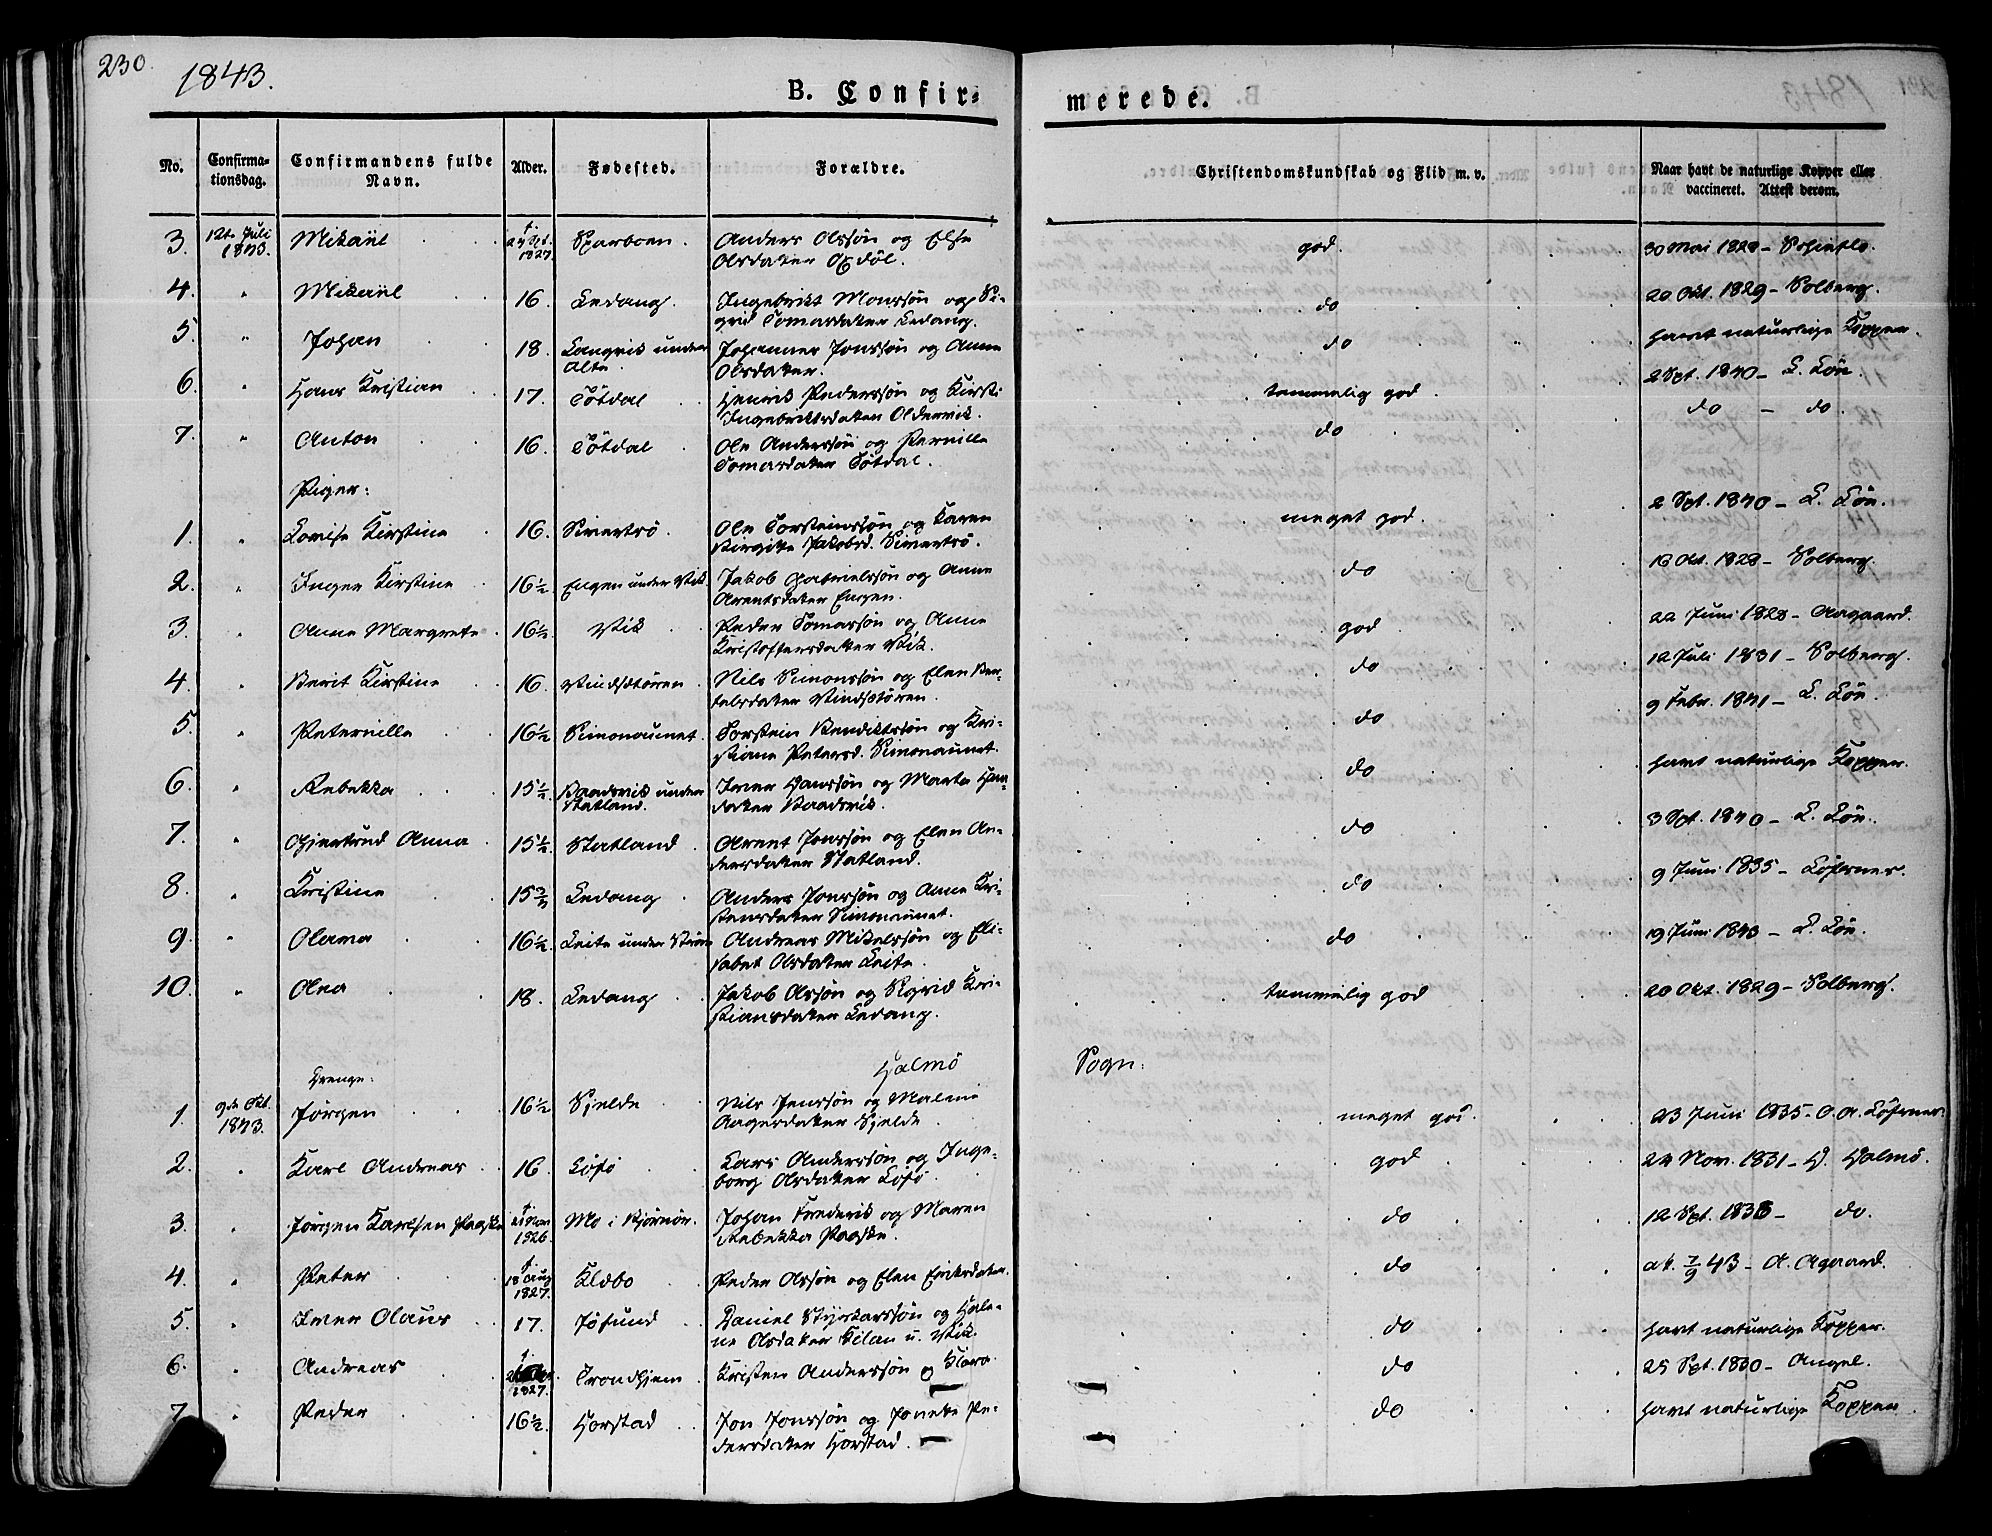 230.
1843.
B. Confir-
merede.
No.
Confirma-
tionsdag.
Confirmandens fulde
Navn.
Alder.
Fødested.
Forældre.
Christendomskundskab og Flid m. v.
Naar havt de naturlige Kopper eller
vaccineret. Attest derom.
3. 12te Juli 1843. Mikael f. 27 Spt. 1827 Sparboen. Anders Olssøn og Else
Olsdater god. 30 Mai 1828 -
4. " Mikael 16 Ledang. Ingebrikt Monssøn og Si-
grid Tomasdater Ledang. do 20 Okt. 1829 - Solberg.
5. " Johan 18. Langvik under
Alte. Johannes Jonssøn og Anne
Olsdater. do havt naturlige Kopper.
6. " Hans Kristian 17. Tøtdal Henrik Pederssøn og Kirsti
Ingebriktsdater Oldervik. temmelig god. 2 Spt. 1840 - L. Løn.
7. " Anton 16. Tøtdal Ole Anderssøn og Pernille
Tomasdater Tøtdal. do do - do.
Piger:
1. " Lovise Kirstine 16. Sivertrø. Ole Torsteinssøn og Karen
Birgite Jakobsd. Sivertrø. meget god. 2 Spt. 1840 - L. Løn.
2. " Inger Kirstine 16½ Engen under Vik. Jakob Gabrielssøn og Anne
Arentsdater Engen. do 18 Okt. 1828 - Solberg.
3. " Anne Margrete 16½ Vik Peder Tomassøn og Anne
Kristoffersdater Vik. god 22 Juni 1828 - Aagaard.
4. " Berit Kirstine 16. Vindsetøren Nils Simonssøn og Elen Ber-
telsdater Vindsetøren. do 12 Juli 1831 - Solberg.
5. " Peternille 16½ Simonaunet. Torstein Bendiktssøn og Kri-
stiane Petersd. Simonaunet. do 9 Febr. 1841 - L. Løn.
6. " Rebekka 15½ Baadsvik under
Statland. Iver Hanssøn og Marta Han-
sdater Baadsvik. do havt naturlige Kopper.
7. " Gjertrud Anna 15½ Statland Arent Jonssøn og Elen An-
dersdater Statland. do 3 Spt. 1840 - L. Løn.
8. " Kristine 15¾ Ledang Anders Jonssøn og Anne Kri-
stensdater Simonaunet. do 9 Juni 1835 - Løfsnes.
9. " Olama 16½ Leite under Andreas Mikelssøn og Eli-
sabet Olsdater Leite. do 19 Juni 1843 - L. Løn.
10. " Olea 18. Ledang Jakob Olssøn og Sigrid Kri-
stiansdater Ledang. temmelig god 20 Okt. 1829 - Solberg.
Halmø Sogn:
Drenge:
1. 9de Okt. 1843. Jørgen 16½ Sjelde Nils Jenssøn og Malene
Aagesdater Sjelde. meget god. 23 Juni 1835 -
2. " Karl Andreas 16 Løfø Lars Anderssøn og Inge-
borg Olsdater Løfø. god 24 Nov. 1831 - H. Halmø.
3. " Jørgen Karlsen Paaske f. 21 Nov 1826. Mo i Bjørnør. Johan Frederik og Maren
Rebekka Paaske. do 12 Spt. 1838 - do.
4. " Peter f. 18 Aug 1827. Klæbo Peder Olssøn og Elen Eriksdater. do at. 7/9 43 - A. Agaard.
5. " Iver Olaus 17. Jøssund Daniel Styrkarssøn og Hele-
ne Olsdater u. Vik. do havt naturlige Kopper.
6. " Andreas f. 1827. Trondhjem Kristen Anderssøn og Klara do 25 Spt. 1830 - Angel.
7. " Peder 16½ Horstad Jon Jonssøn og Jonette Pe-
dersdater Horstad. do havt naturlige Kopper.